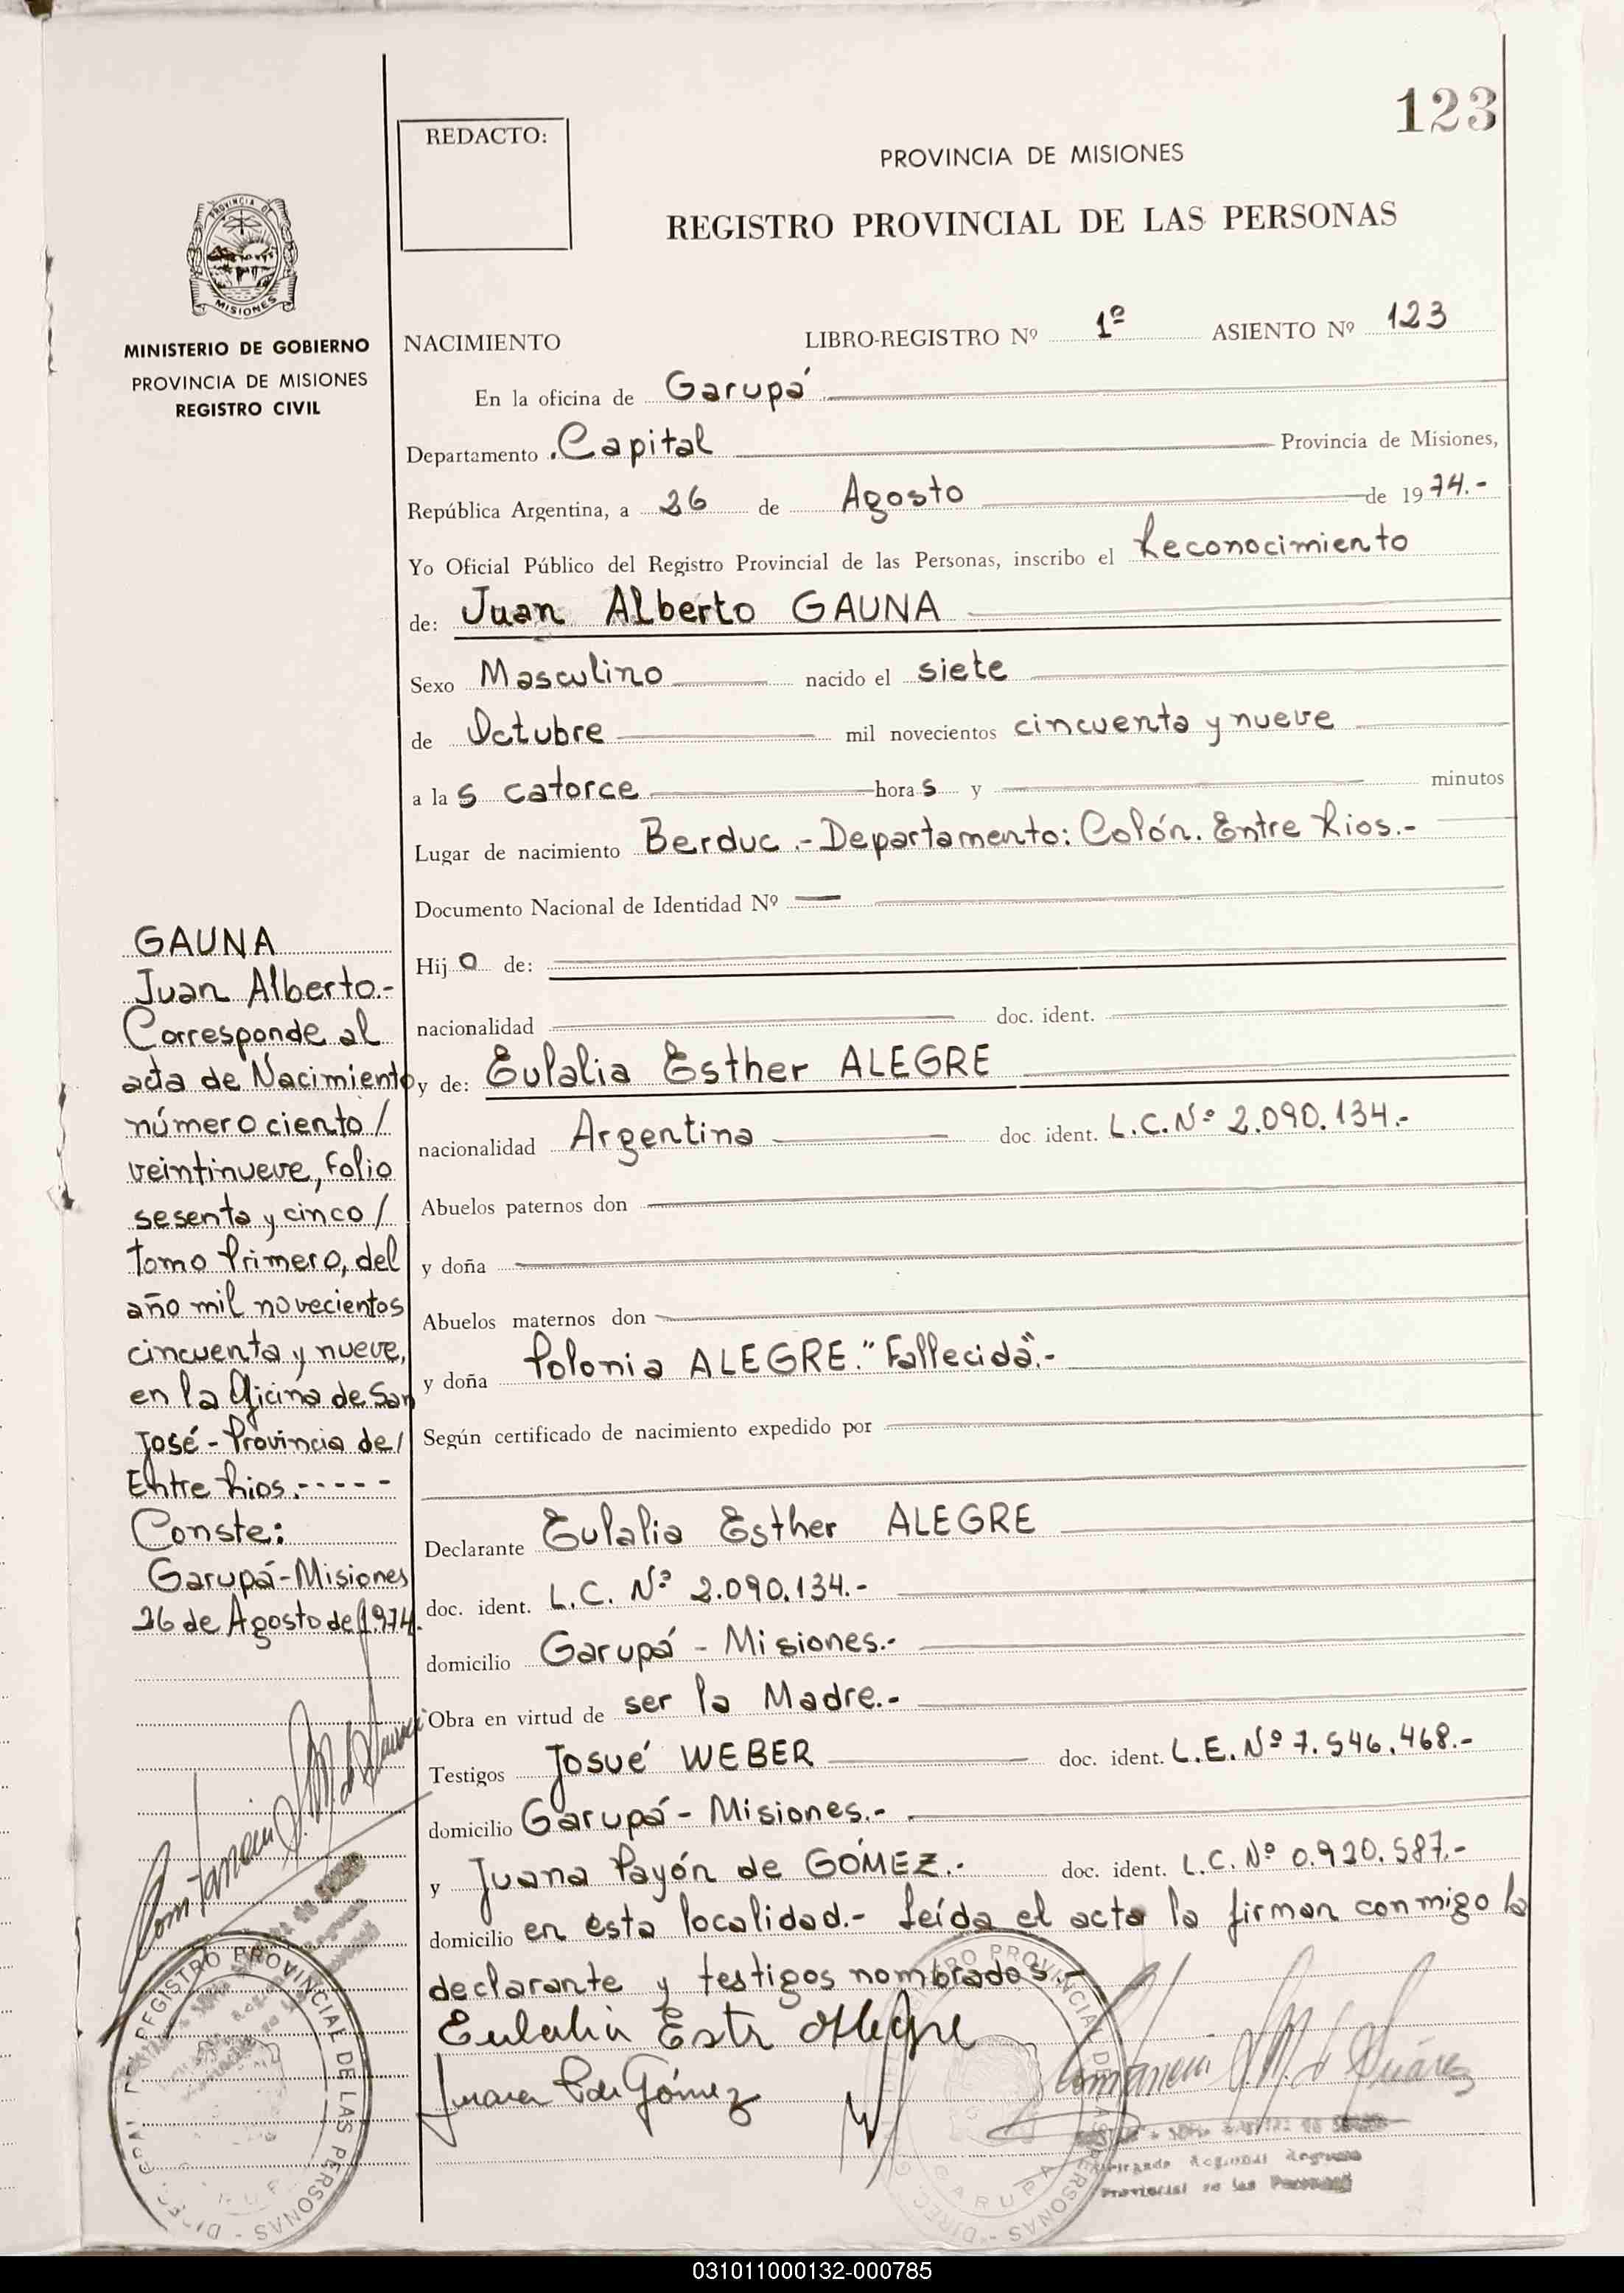 123
REDACTO:
PROVINCIA DE MISIONES
REGISTRO PROVINCIAL DE LAS PERSONAS
PROVINCIA DE
MISIONES
MINISTERIO DE GOBIERNO
PROVINCIA DE MISIONES
REGISTRO CIVIL
NACIMIENTO LIBRO-REGISTRO Nº 1º ASIENTO Nº 123
En la oficina de Garupá
Departamento Capital Provincia de Misiones,
República Argentina, a 26 de Agosto de 1974.-
Yo Oficial Público del Registro Provincial de las Personas, inscribo el Reconocimiento
de: Juan Alberto GAUNA
Sexo Masculino nacido el siete
de Octubre mil novecientos cincuenta y nueve
a las catorce horas y minutos
Lugar de nacimiento Berduc.- Departamento: Colón. Entre Rios.-
Documento Nacional de Identidad Nº —
Hijo de:
nacionalidad doc. ident.
y de: Eulalia Esther ALEGRE
nacionalidad Argentina doc. ident. L.C. Nº 2.090.134.-
Abuelos paternos don
y doña
Abuelos maternos don
y doña Polonia ALEGRE. "Fallecida".-
Según certificado de nacimiento expedido por
Declarante Eulalia Esther ALEGRE
doc. ident. L.C. Nº 2.090.134.-
domicilio Garupá - Misiones.-
Obra en virtud de ser la Madre.-
Testigos Josué WEBER doc. ident. L.E. Nº 7.546.468.-
domicilio Garupá - Misiones.-
y Juana Payón de GOMEZ.- doc. ident. L.C. Nº 0.920.587.-
domicilio en esta localidad.- Leída el acta la firman conmigo la
declarante y testigos nombrados.-
Eulalia Estr Alegre
Juana P. de Gómez
GAUNA
Juan Alberto.-
Corresponde al
acta de Nacimiento
número ciento /
veintinueve, Folio
sesenta y cinco /
Tomo Primero, del
año mil novecientos
cincuenta y nueve,
en la Oficina de San
José - Provincia de /
Entre Rios.-----
Conste:
Garupá - Misiones
26 de Agosto de 1.974.
REGISTRO PROVINCIAL DE LAS PERSONAS
PROVINCIAL DE LAS PERSONAS
GARUPA
031011000132-000785